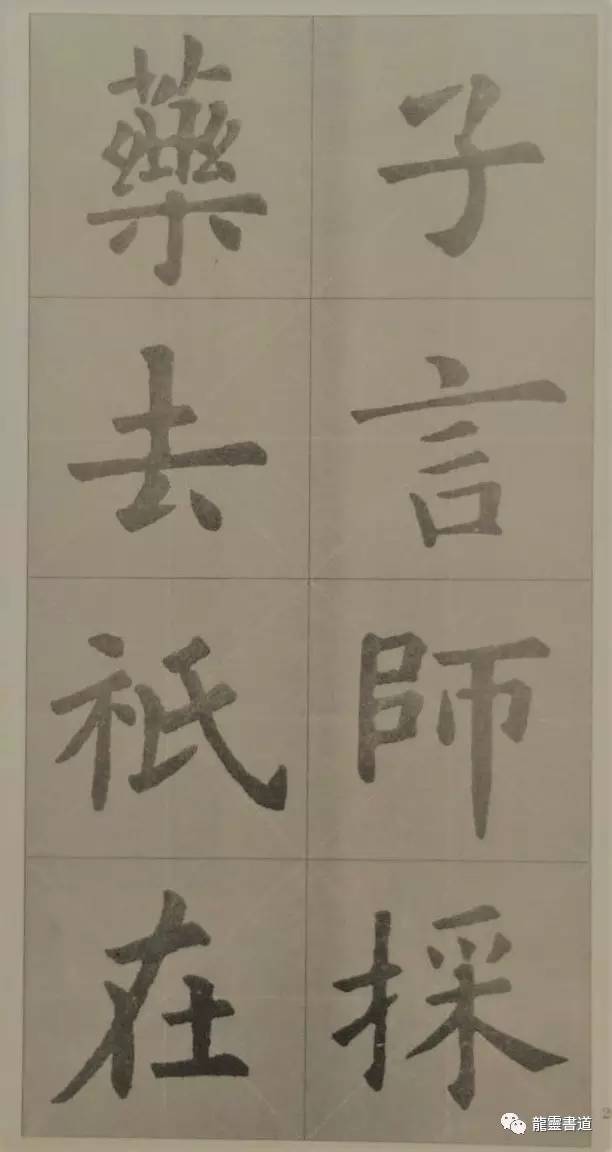 子言師採
藥去祇在
2
龍靈書道